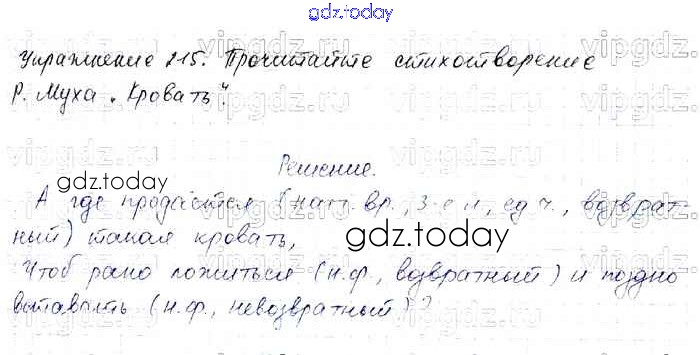 gdz.today
Упражнение 215. Прочитайте стихотворение
Р. Муха „Кровать".
Решение.
gdz.today
А где продаётся (наст. вр., 3-е л., ед. ч., возврат-
ный) такая кровать,
gdz.today
Чтоб рано ложиться (н.ф., возвратный) и поздно
вставать (н.ф., невозвратный)?
gdz.today